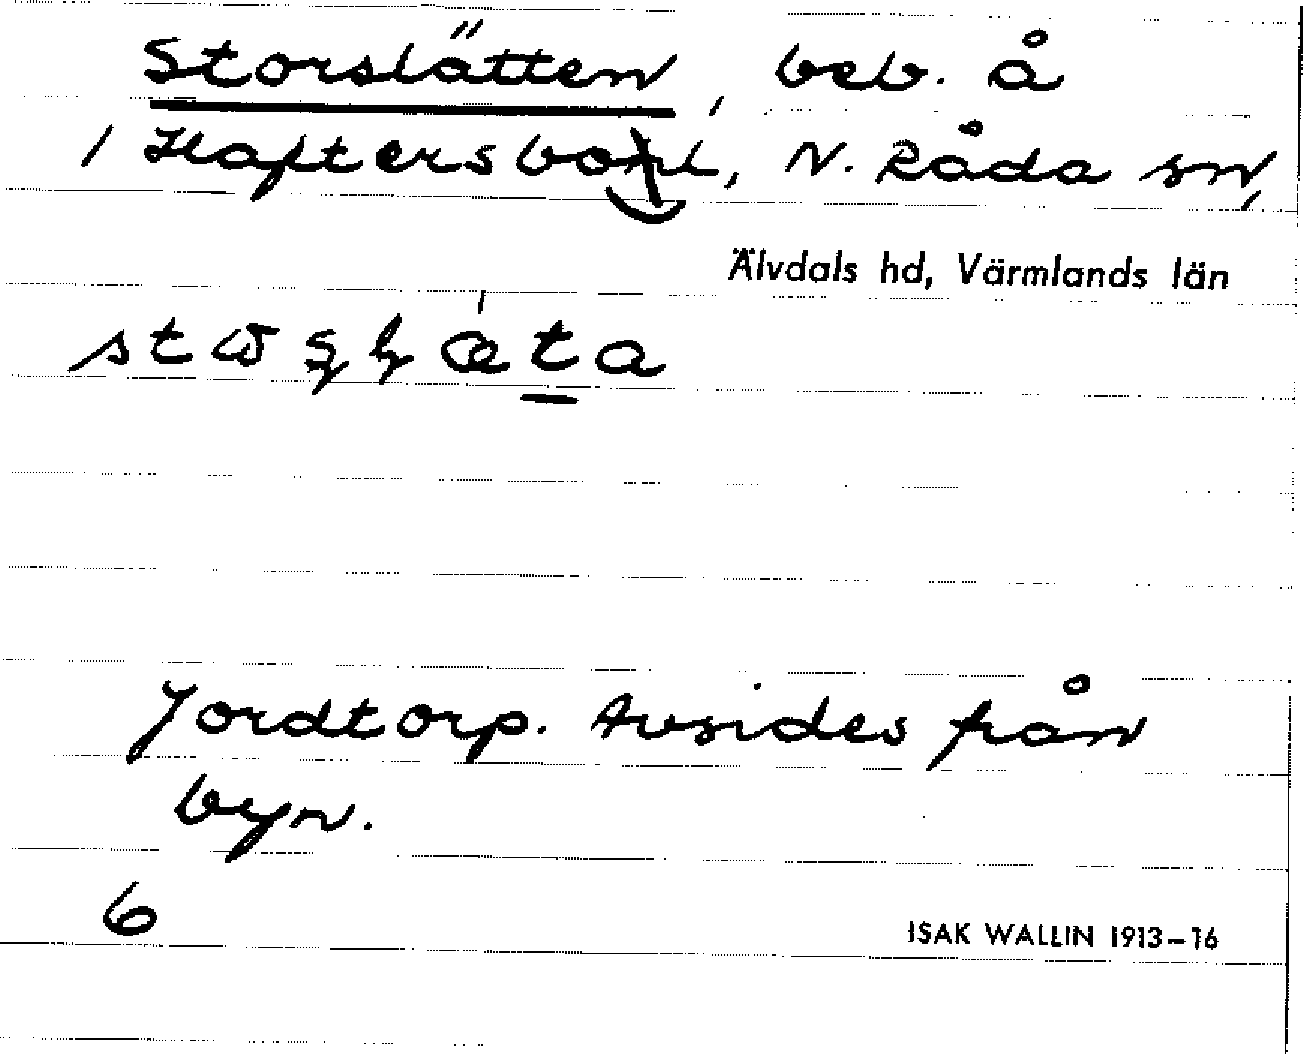 Storslätten, beb. å
/ Haftersbol, N. Råda sn,
Älvdals hd, Värmlands län
Jordtorp. Avsides från
byn.
6
ISAK WALLIN 1913–16